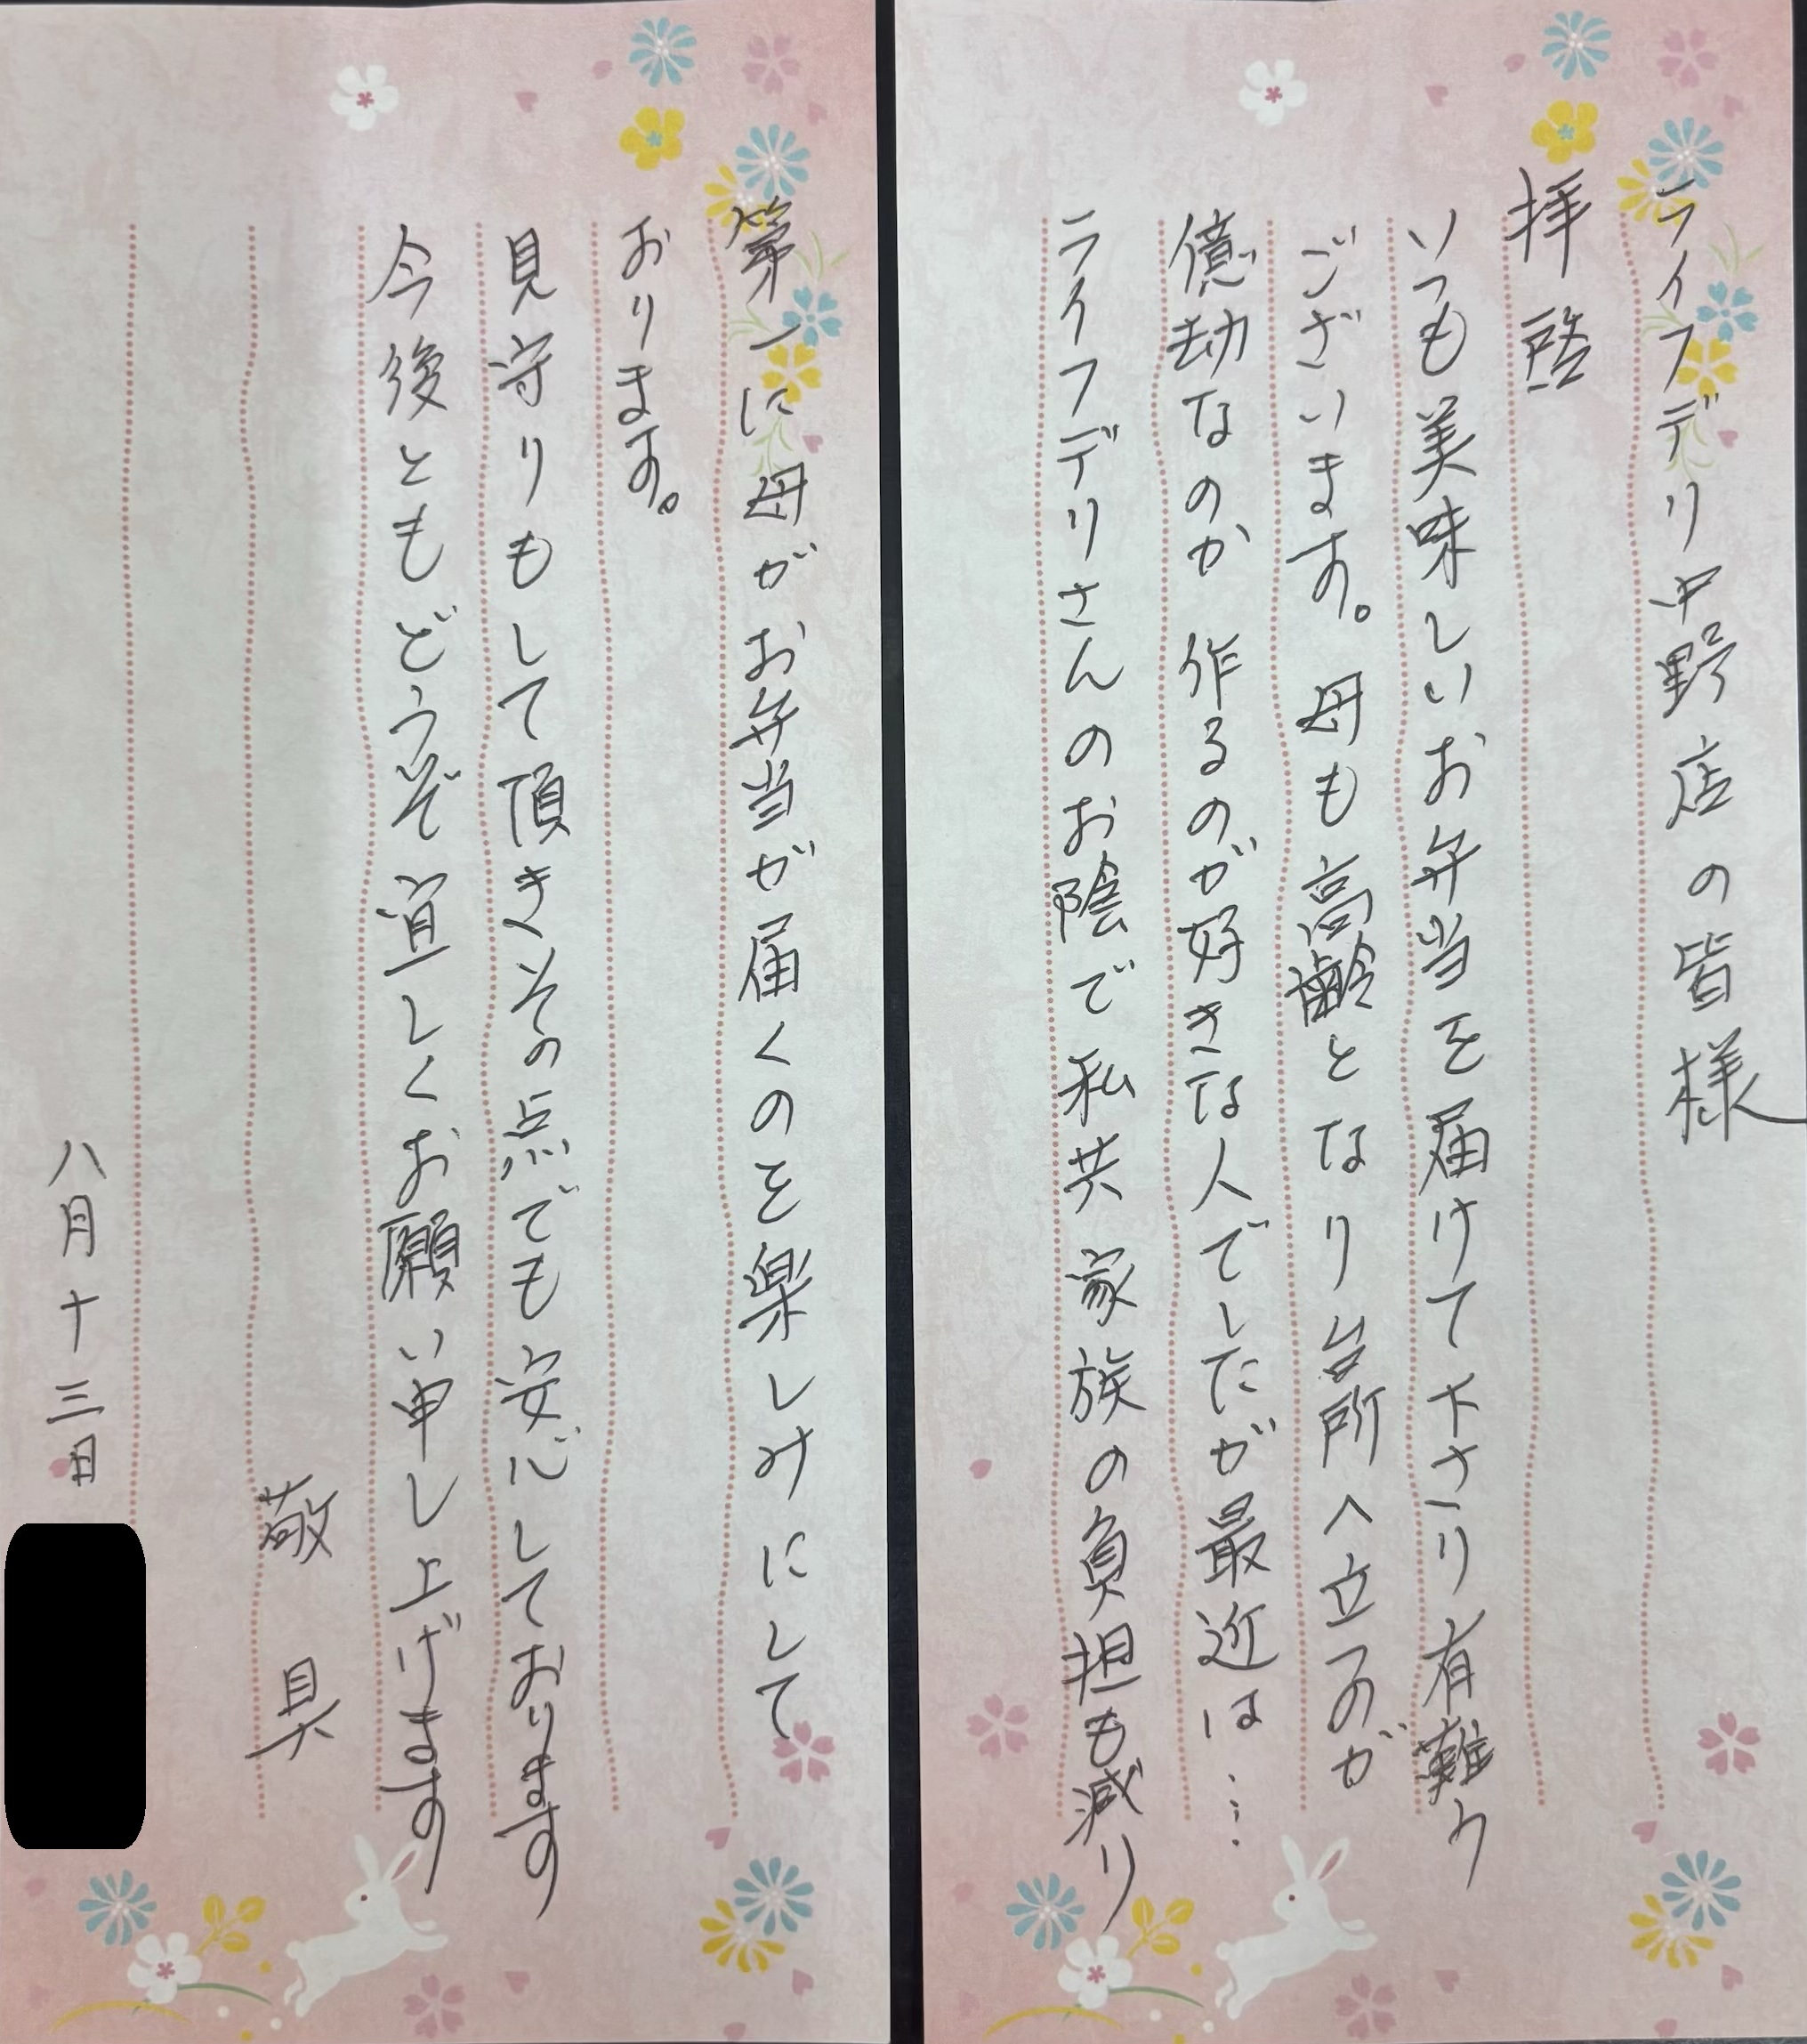 ライフデリ中野店の皆様
拝啓
いつも美味しいお弁当を届けて下さり有難う
ございます。母も高齢となり台所へ立つのが
億劫なのか作るのが好きな人でしたが最近は…
ライフデリさんのお陰で私共家族の負担も減り
第一に母がお弁当が届くのを楽しみにして
おります。
見守りもして頂きその点でも安心しております
今後ともどうぞ宜しくお願い申し上げます
敬具
八月十三日